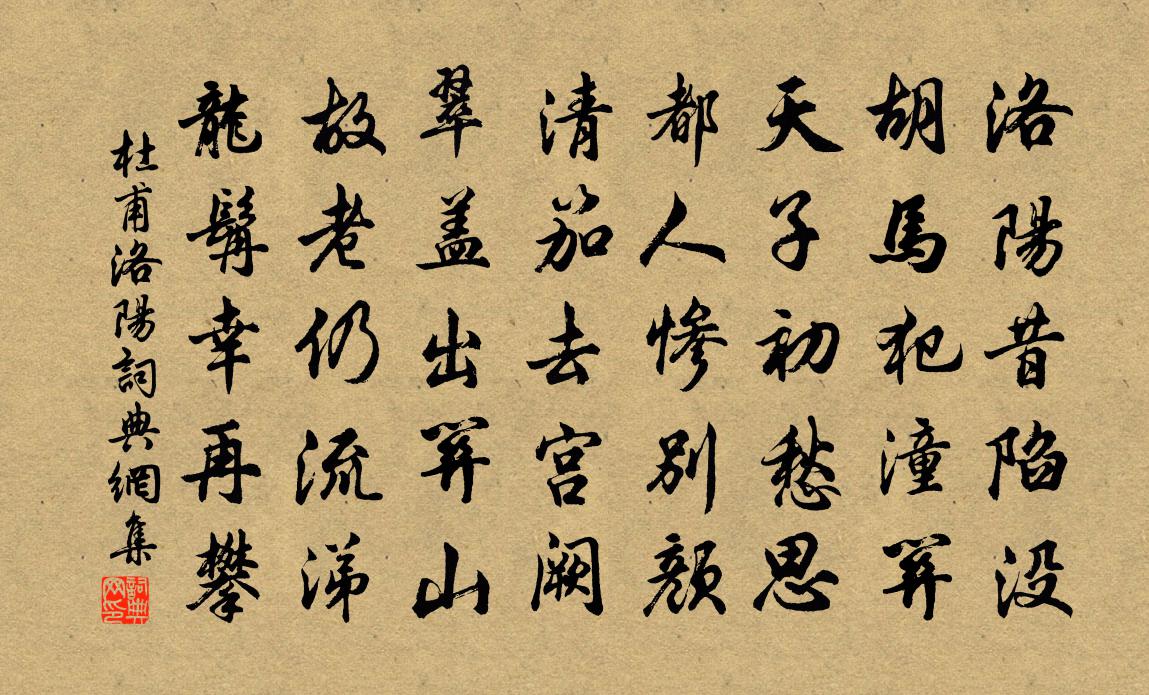 洛陽昔陷没
胡馬犯潼關
天子初愁思
都人慘別顏
清笳去宮闕
翠蓋出關山
故老仍流涕
龍髯幸再攀
杜甫洛陽詞典網集
詞典
网印